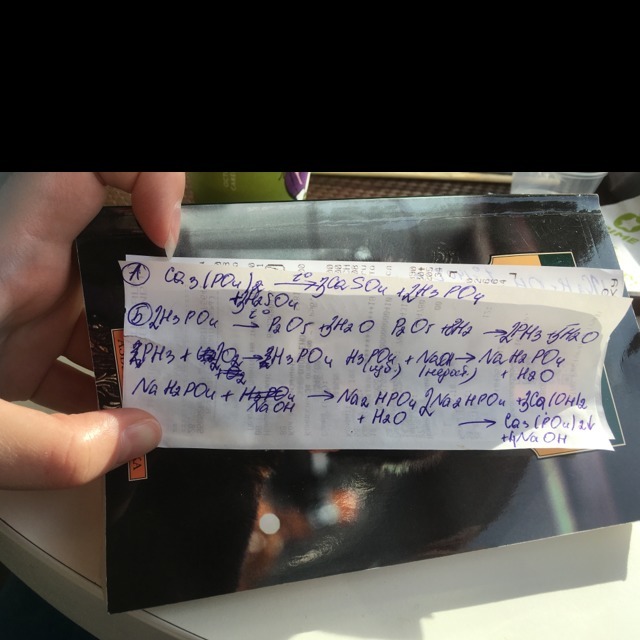 А) Ca3(PO4)2 + 3H2SO4 →t° 3CaSO4 + 2H3PO4
Б) 2H3PO4 →t° P2O5 + 3H2O P2O5 + 8H2 → 2PH3 + 5H2O
PH3 + 2O2 → H3PO4 H3PO4 (изб) + NaOH (недост) → NaH2PO4 + H2O
NaH2PO4 + NaOH → Na2HPO4 + H2O 2Na2HPO4 + 3Ca(OH)2
→ Ca3(PO4)2↓ + 4NaOH